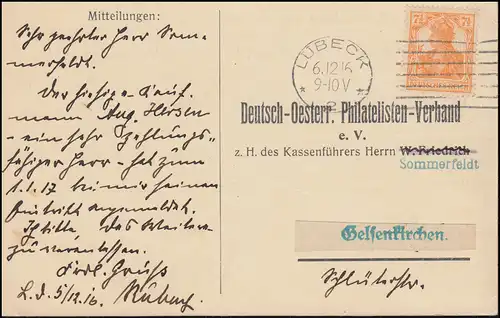 Mitteilungen:
Sehr geehrter Herr Som-
merfeldt.
Der hiesige Kauf-
mann Aug.
- ein sehr zahlungs-
fähiger Herr - hat zum
1.1.17 bei mir seinen
Eintritt angemeldet.
Ich bitte, das Weitere
zu veranlassen.
Frdl. Gruss
L. d. 5/12.16.
7½ 7½
DEUTSCHES REICH
LÜBECK
6.12.16
9-10 V
* 2 *
Deutsch-Oesterr. Philatelisten-Verband
e. V.
z. H. des Kassenführers Herrn W. Friedrich
Sommerfeldt
Gelsenkirchen.
Schlüterstr.